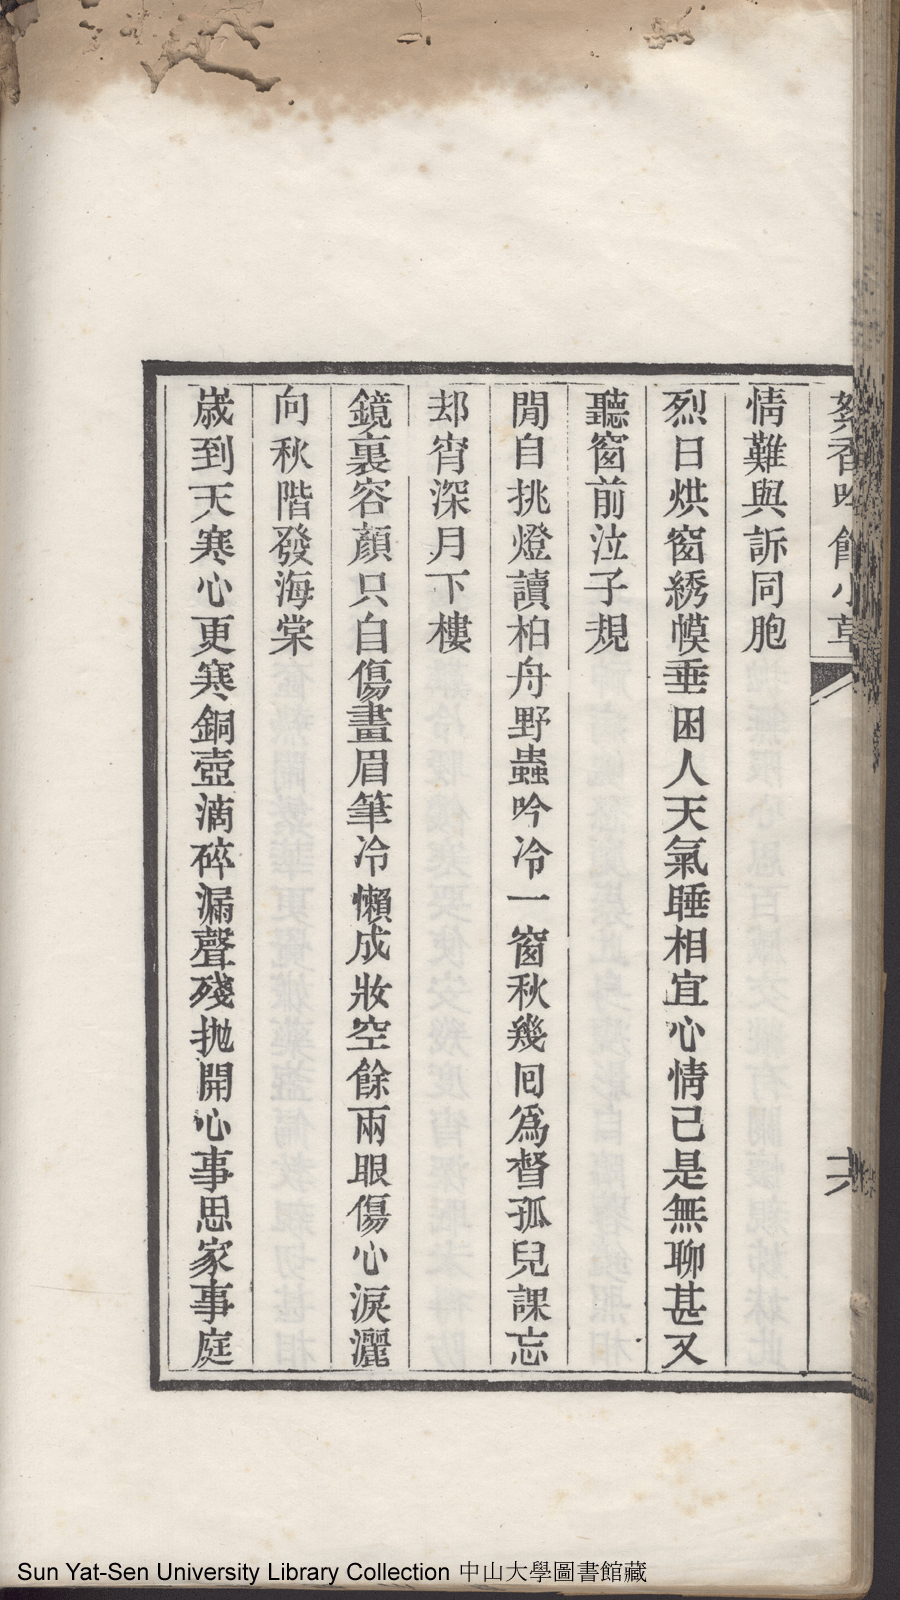 餐香吟館小草
情難與訴同胞
烈日烘窗綉幙垂困人天氣睡相宜心情己是無聊甚又
聽窗前泣子規
閒自挑燈讀柏舟野蟲吟冷一窗秋幾囘爲督孤兒課忘
却宵深月下樓
鏡裏容顏只自傷畫眉筆冷懶成妝空餘兩眼傷心淚灑
向秋階發海棠
歲到天寒心更寒銅壺滴碎漏聲殘拋開心事思家事庭
Sun Yat-Sen University Library Collection 中山大學圖書館藏